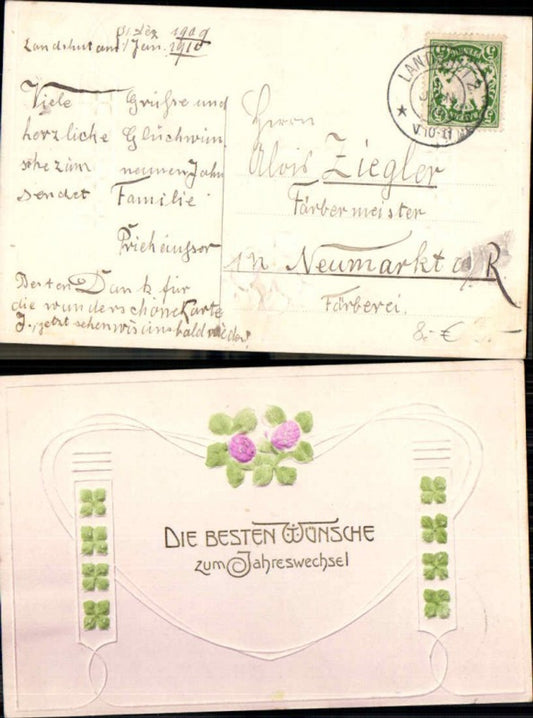 31. Dez. 1909
Landshut am 1 Jan. 1910
Viele Grüßre und
herzliche Glüchwün
sche züm neunen Jahr
sendet Familie
Priehäusser
Besten Dank für
die wunderschöne Karte
J., jetzt sehen wir uns bald wieder!
Herrn
Alois Ziegler
Färbermeister
in Neumarkt a/R.
Färberei.
8.- €
LANDSHUT 2
V 10-11
5
BAYERN
DIE BESTEN WÜNSCHE
zum Jahreswechsel